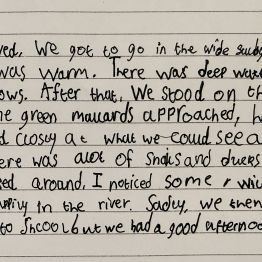 ved, We got to go in the wide
was warm. There was deep
ows. After that, We stood on th
e green mallards approached, h
d closly at what we could see a
ere was alot of Snails and ducks
ed around, I noticed some wi
in the river. Sadly, we then
to Shcool but we had a good afternoo